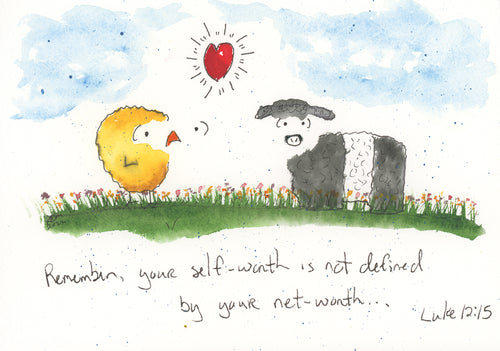 Remember, your self-worth is not defined
by your net-worth...
Luke 12:15